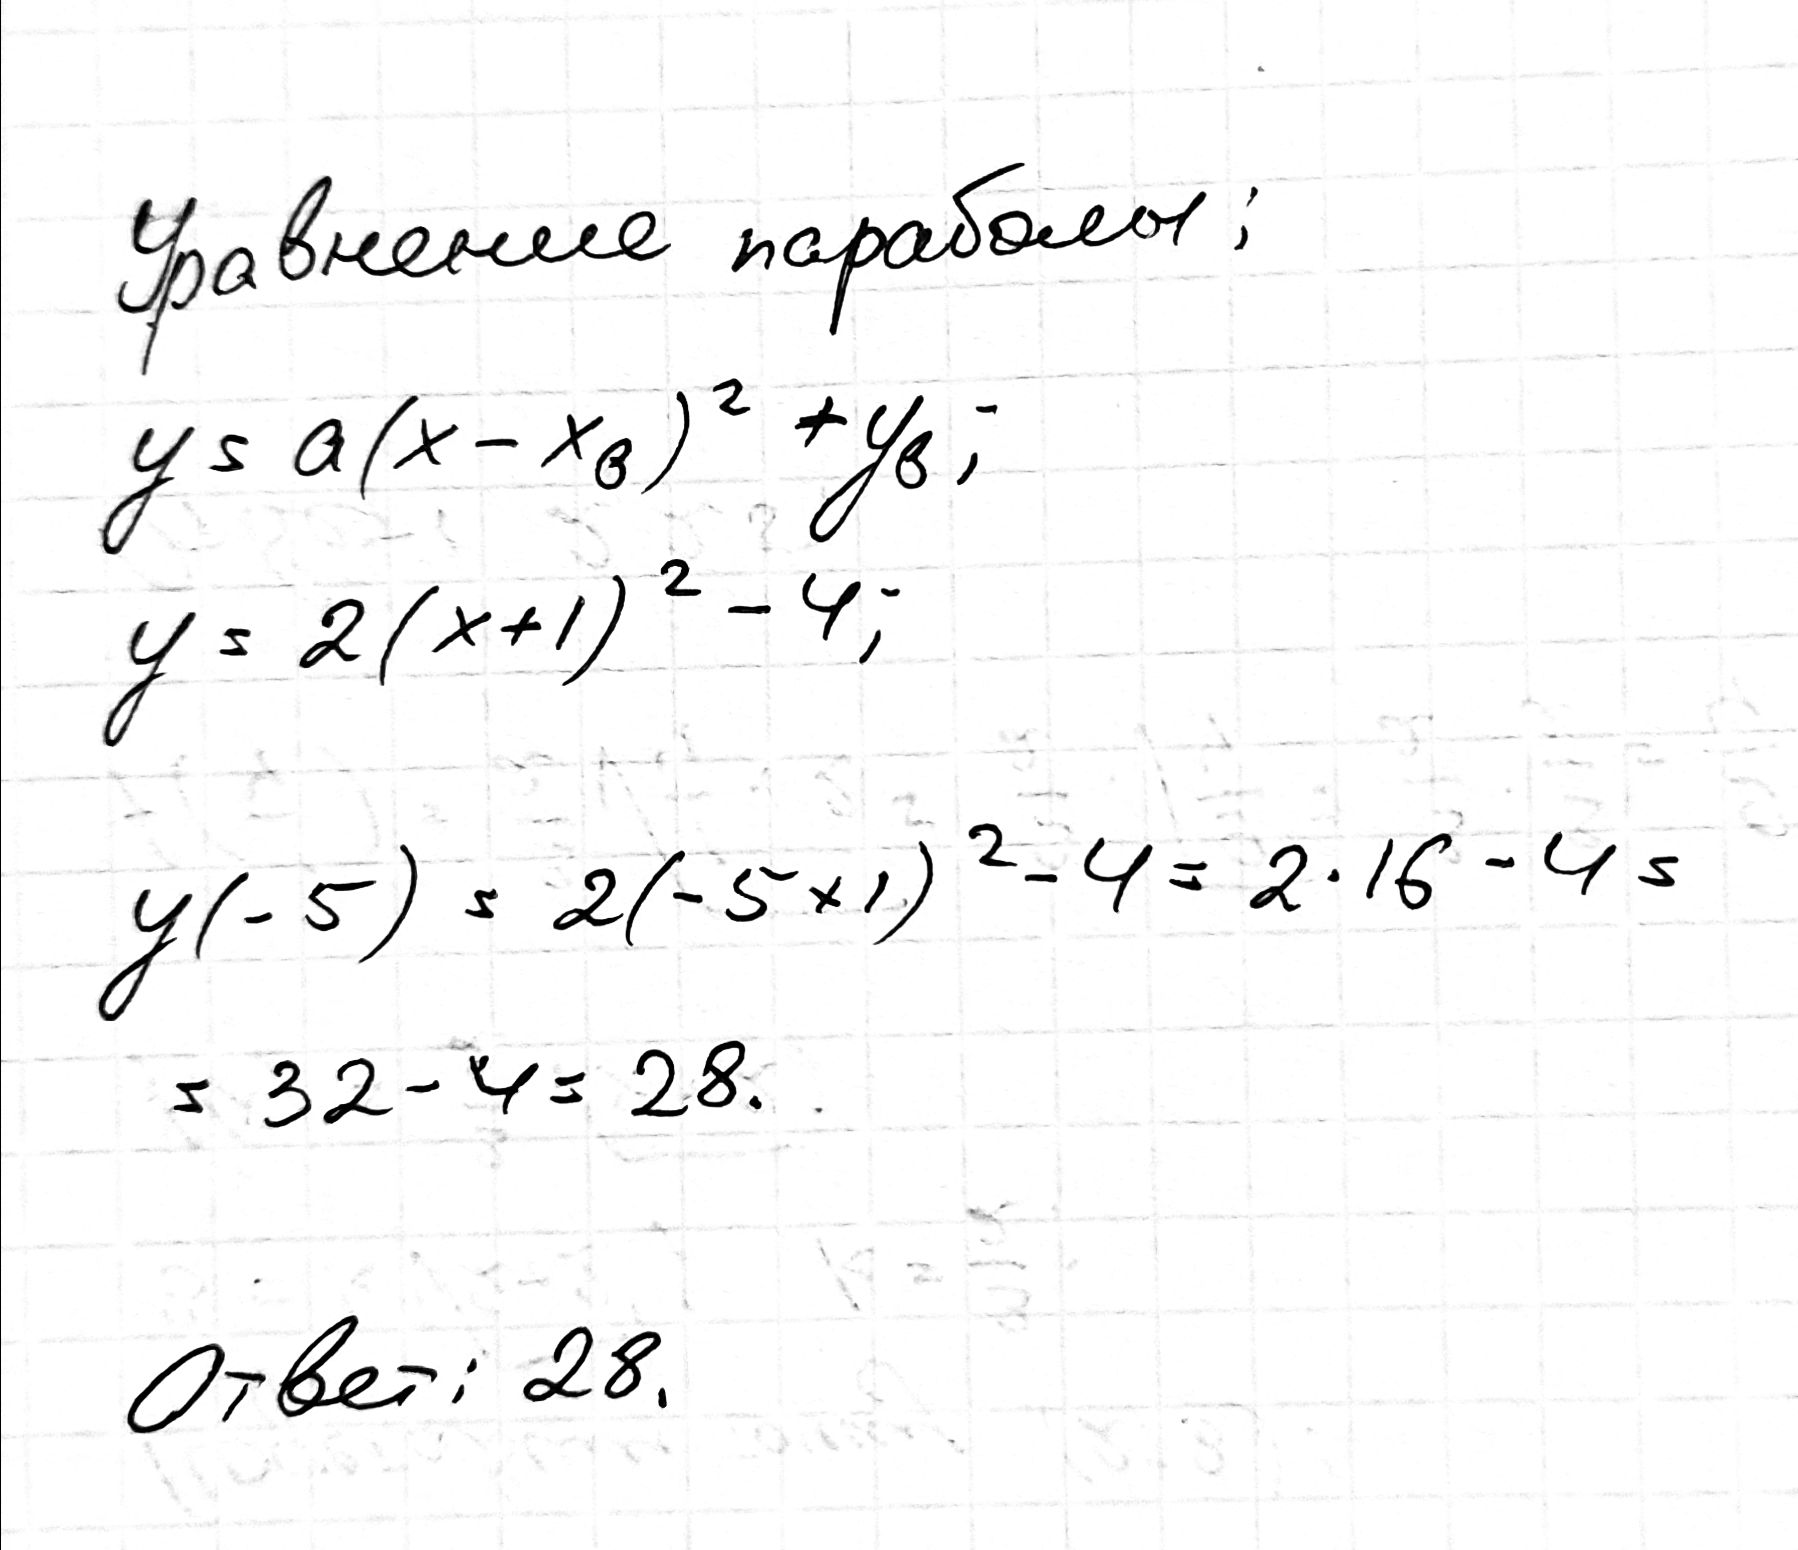 Уравнение параболы:
y = a(x - xв)² + yв;
y = 2(x+1)² - 4;
y(-5) = 2(-5+1)² - 4 = 2·16 - 4 =
= 32 - 4 = 28.
Ответ: 28.